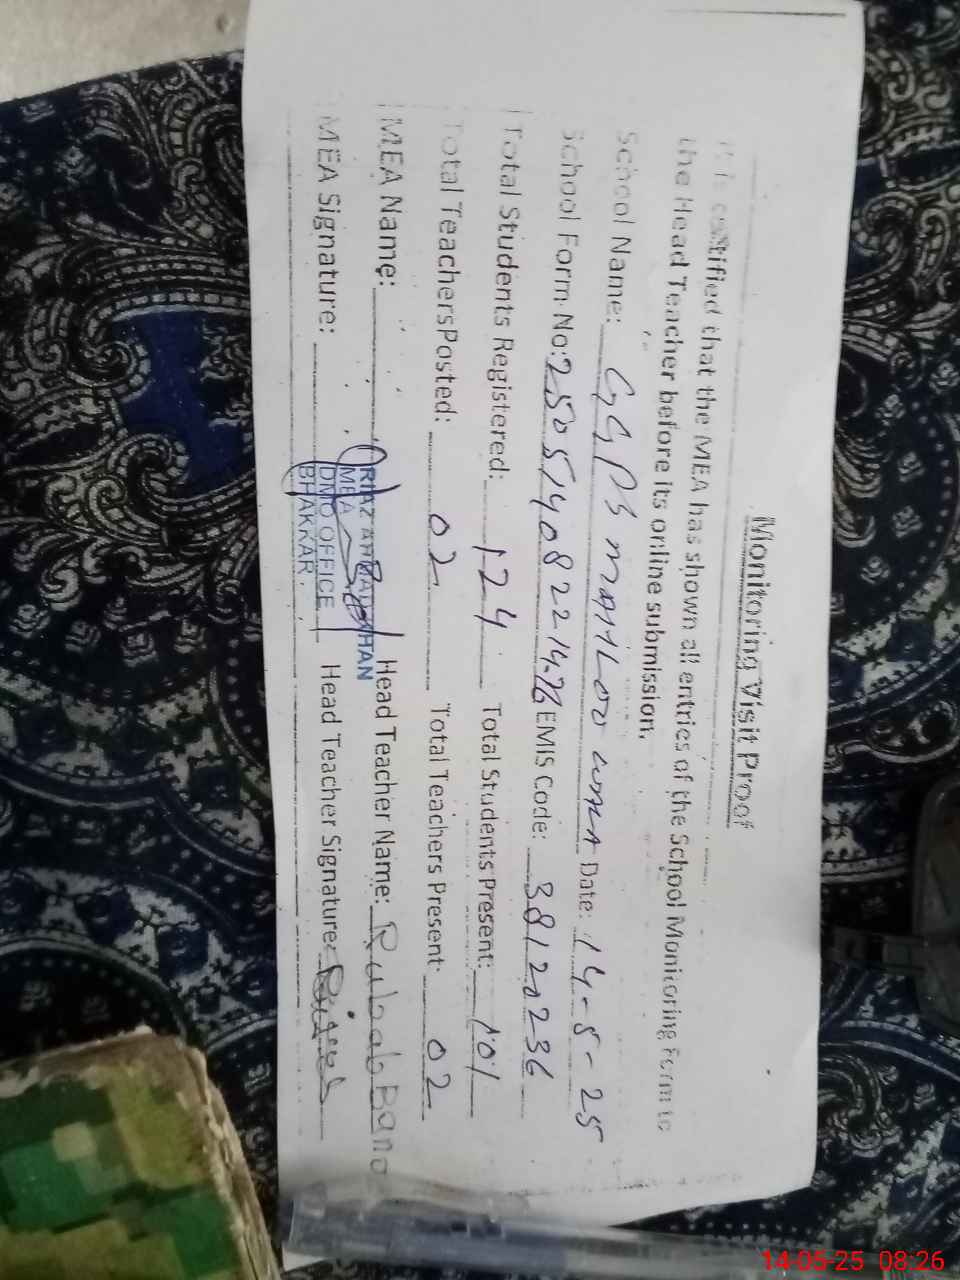 Monitoring Visit Proof
It is certified that the MEA has shown all entries of the School Monitoring Form to
the Head Teacher before its online submission.
School Name: GGPS Date: 14-5-25
School Form No: EMIS Code: 38120236
Total Students Registered: 124 Total Students Present: 101
Total Teachers Posted: 02 Total Teachers Present: 02
MEA Name: RIAZ AHMAD KHAN Head Teacher Name: Rubab Bano
MEA
MEA Signature: DMO OFFICE Head Teacher Signature:
BHAKKAR.
14-05-25 08:26